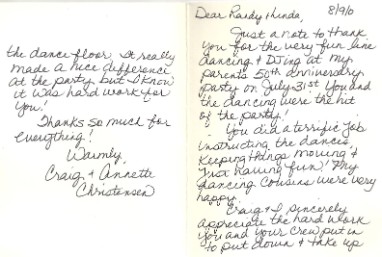 8/9/0
Dear Randy & Linda,
Just a note to thank
you for the very fun line
dancing & DJing at my
parents 50th anniversary
party on July 31st. You and
the dancing were the hit
of the party!
You did a terrific job
instructing the dances,
keeping things moving &
just having fun! My
dancing cousins were very
happy.
Craig & I sincerely
appreciate the hard work
you and your crew put in
to put down & take up
the dance floor. It really
made a nice difference
at the party but I know
it was hard work for
you!
Thanks so much for
everything!
Warmly,
Craig & Annette
Christensen